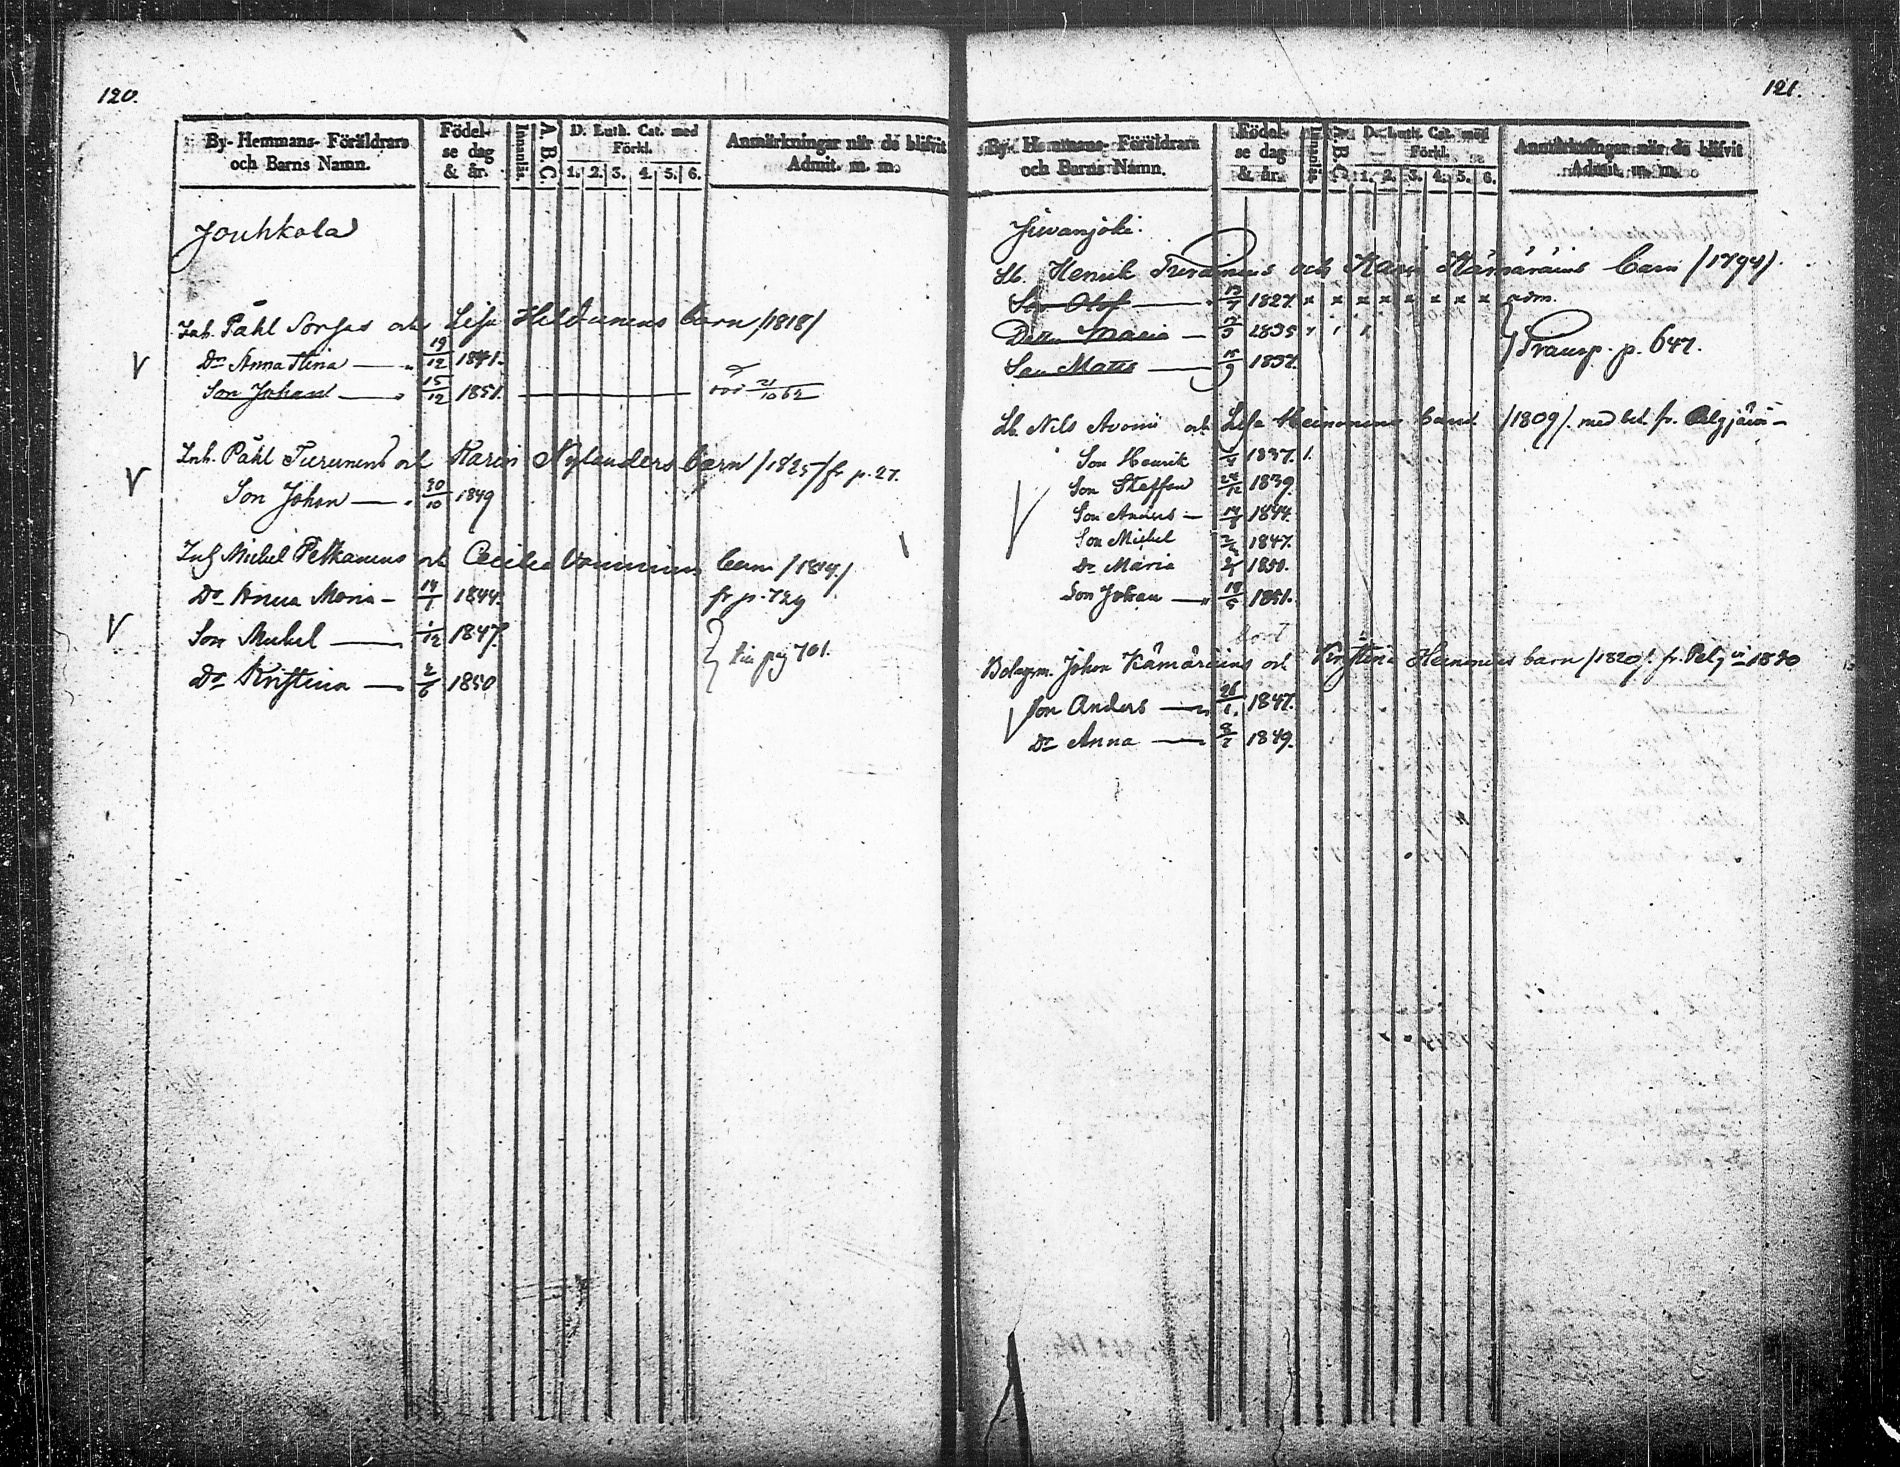 120.
By- Hemmans- Föräldrars och Barns Namn.
Födelse dag & år.
Innanläs.
A. B. C.
D. Luth. Cat. med Förkl.
1. 2. 3. 4. 5. 6.
Anmärkningar när de blifvit Admit. m. m.
Jouhkola
Inh. Påhl Sorsas och Lisa Hildunens barn /1818/
Dr Anna Stina 19/12 1841.
Son Johan 15/12 1851. 21/10 62
Inh. Påhl Turunens och Karin Nylanders barn /1825/ fr p. 27.
Son Johan 30/10 1849
Inh Mickel Petkanens och Cecilia barn /1814/
Dr Anna Maria 14/1 1844. fr p. 729
Son Mickel 1/12 1847.
Dr Kristina 2/6 1850
pag 701.
121.
By- Hemmans- Föräldrars och Barns Namn.
Födelse dag & år.
Innanläs.
A. B. C.
D. Luth. Cat. med Förkl.
1. 2. 3. 4. 5. 6.
Anmärkningar när de blifvit Admit. m. m.
Jiivanjoki.
Lb. Henrik Turunens och Karin Kämäräins barn /1794/.
Son Olof 1827 x x x x x x x x adm.
Dottr Maria 1835
Son Matts 1837.
Transp. p. 647.
Lb. Nils och Lisa Heinonens barn /1809/. med bet. fr.
Son Henrik 1837. 1.
Son Staffan 1839.
Son Anders 1844.
Son Mickel 1847.
Dr Maria 1850.
Son Johan 1851.
Bolagsm. Johan Kämäräins och Kristina Heinonens barn /1820/. fr. 1850
Son Anders 26/1. 1847.
Dr Anna 1849.